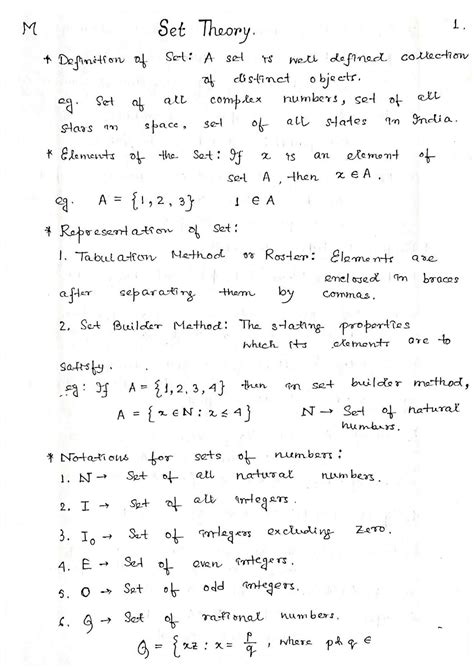 M Set Theory. 1.
* Definition of Set: A set is well defined collection
of distinct objects.
eg. Set of all complex numbers, set of all
stars in space, set of all states in India.
* Elements of the Set: If x is an element of
set A, then x ∈ A.
eg. A = {1, 2, 3} 1 ∈ A
* Representation of Set:
1. Tabulation Method or Roster: Elements are
enclosed in braces
after separating them by commas.
2. Set Builder Method: The stating properties
which its elements are to
satisfy.
eg: If A = {1, 2, 3, 4} then in set builder method,
A = {x ∈ N : x ≤ 4} N → Set of natural
numbers.
* Notations for sets of numbers:
1. N → Set of all natural numbers.
2. I → Set of all integers.
3. I₀ → Set of integers excluding zero.
4. E → Set of even integers.
5. O → Set of odd integers.
6. Q → Set of rational numbers.
Q = {xz : x = p/q, where p & q ∈